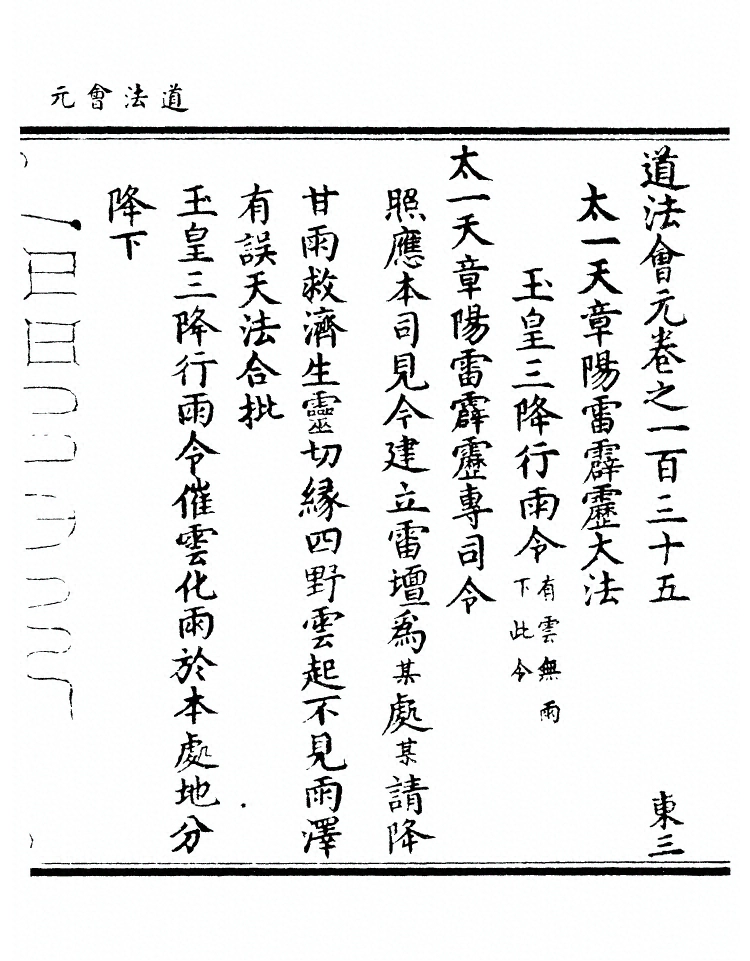 道法會元
道法會元卷之一百三十五 東三
太一天章陽雷霹靂大法
玉皇三降行雨令 有雲無雨下此令
太一天章陽雷霹靂專司令
照應本司見今建立雷壇爲某處某請降
甘雨救濟生靈切緣四野雲起不見雨澤
有誤天法合批
玉皇三降行雨令催雲化雨於本處地分
降下